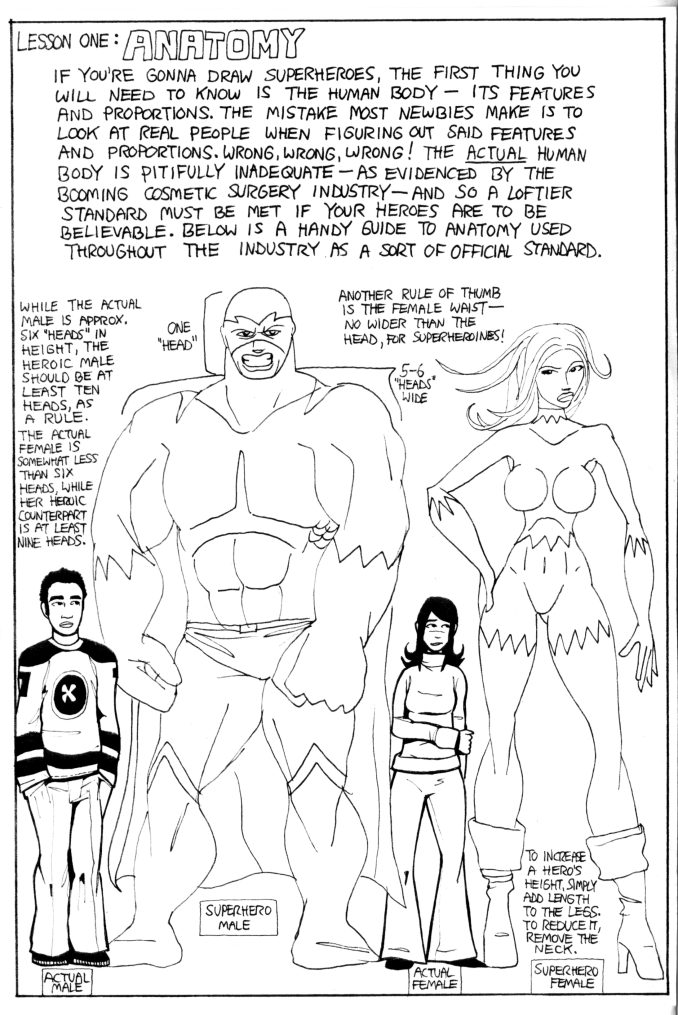 LESSON ONE: ANATOMY
IF YOU'RE GONNA DRAW SUPERHEROES, THE FIRST THING YOU
WILL NEED TO KNOW IS THE HUMAN BODY — ITS FEATURES
AND PROPORTIONS. THE MISTAKE MOST NEWBIES MAKE IS TO
LOOK AT REAL PEOPLE WHEN FIGURING OUT SAID FEATURES
AND PROPORTIONS. WRONG, WRONG, WRONG! THE ACTUAL HUMAN
BODY IS PITIFULLY INADEQUATE — AS EVIDENCED BY THE
BOOMING COSMETIC SURGERY INDUSTRY — AND SO A LOFTIER
STANDARD MUST BE MET IF YOUR HEROES ARE TO BE
BELIEVABLE. BELOW IS A HANDY GUIDE TO ANATOMY USED
THROUGHOUT THE INDUSTRY AS A SORT OF OFFICIAL STANDARD.
WHILE THE ACTUAL
MALE IS APPROX.
SIX "HEADS" IN
HEIGHT, THE
HEROIC MALE
SHOULD BE AT
LEAST TEN
HEADS, AS
A RULE.
THE ACTUAL
FEMALE IS
SOMEWHAT LESS
THAN SIX
HEADS, WHILE
HER HEROIC
COUNTERPART
IS AT LEAST
NINE HEADS.
ONE
"HEAD"
ANOTHER RULE OF THUMB
IS THE FEMALE WAIST —
NO WIDER THAN THE
HEAD, FOR SUPERHEROINES!
5-6
"HEADS"
WIDE
X
TO INCREASE
A HERO'S
HEIGHT, SIMPLY
ADD LENGTH
TO THE LEGS.
TO REDUCE IT,
REMOVE THE
NECK.
ACTUAL
MALE
SUPERHERO
MALE
ACTUAL
FEMALE
SUPERHERO
FEMALE